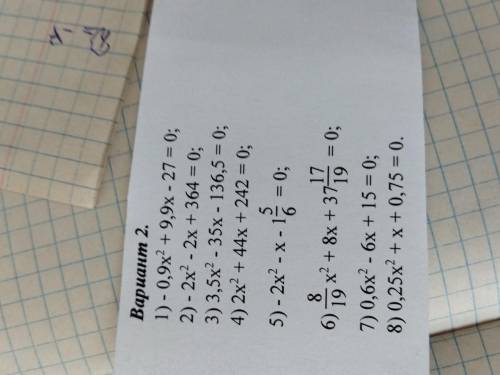 Вариант 2.
1) - 0,9x² + 9,9x - 27 = 0;
2) - 2x² - 2x + 364 = 0;
3) 3,5x² - 35x - 136,5 = 0;
4) 2x² + 44x + 242 = 0;
5) - 2x² - x - 1 5/6 = 0;
6) 8/19 x² + 8x + 37 17/19 = 0;
7) 0,6x² - 6x + 15 = 0;
8) 0,25x² + x + 0,75 = 0.